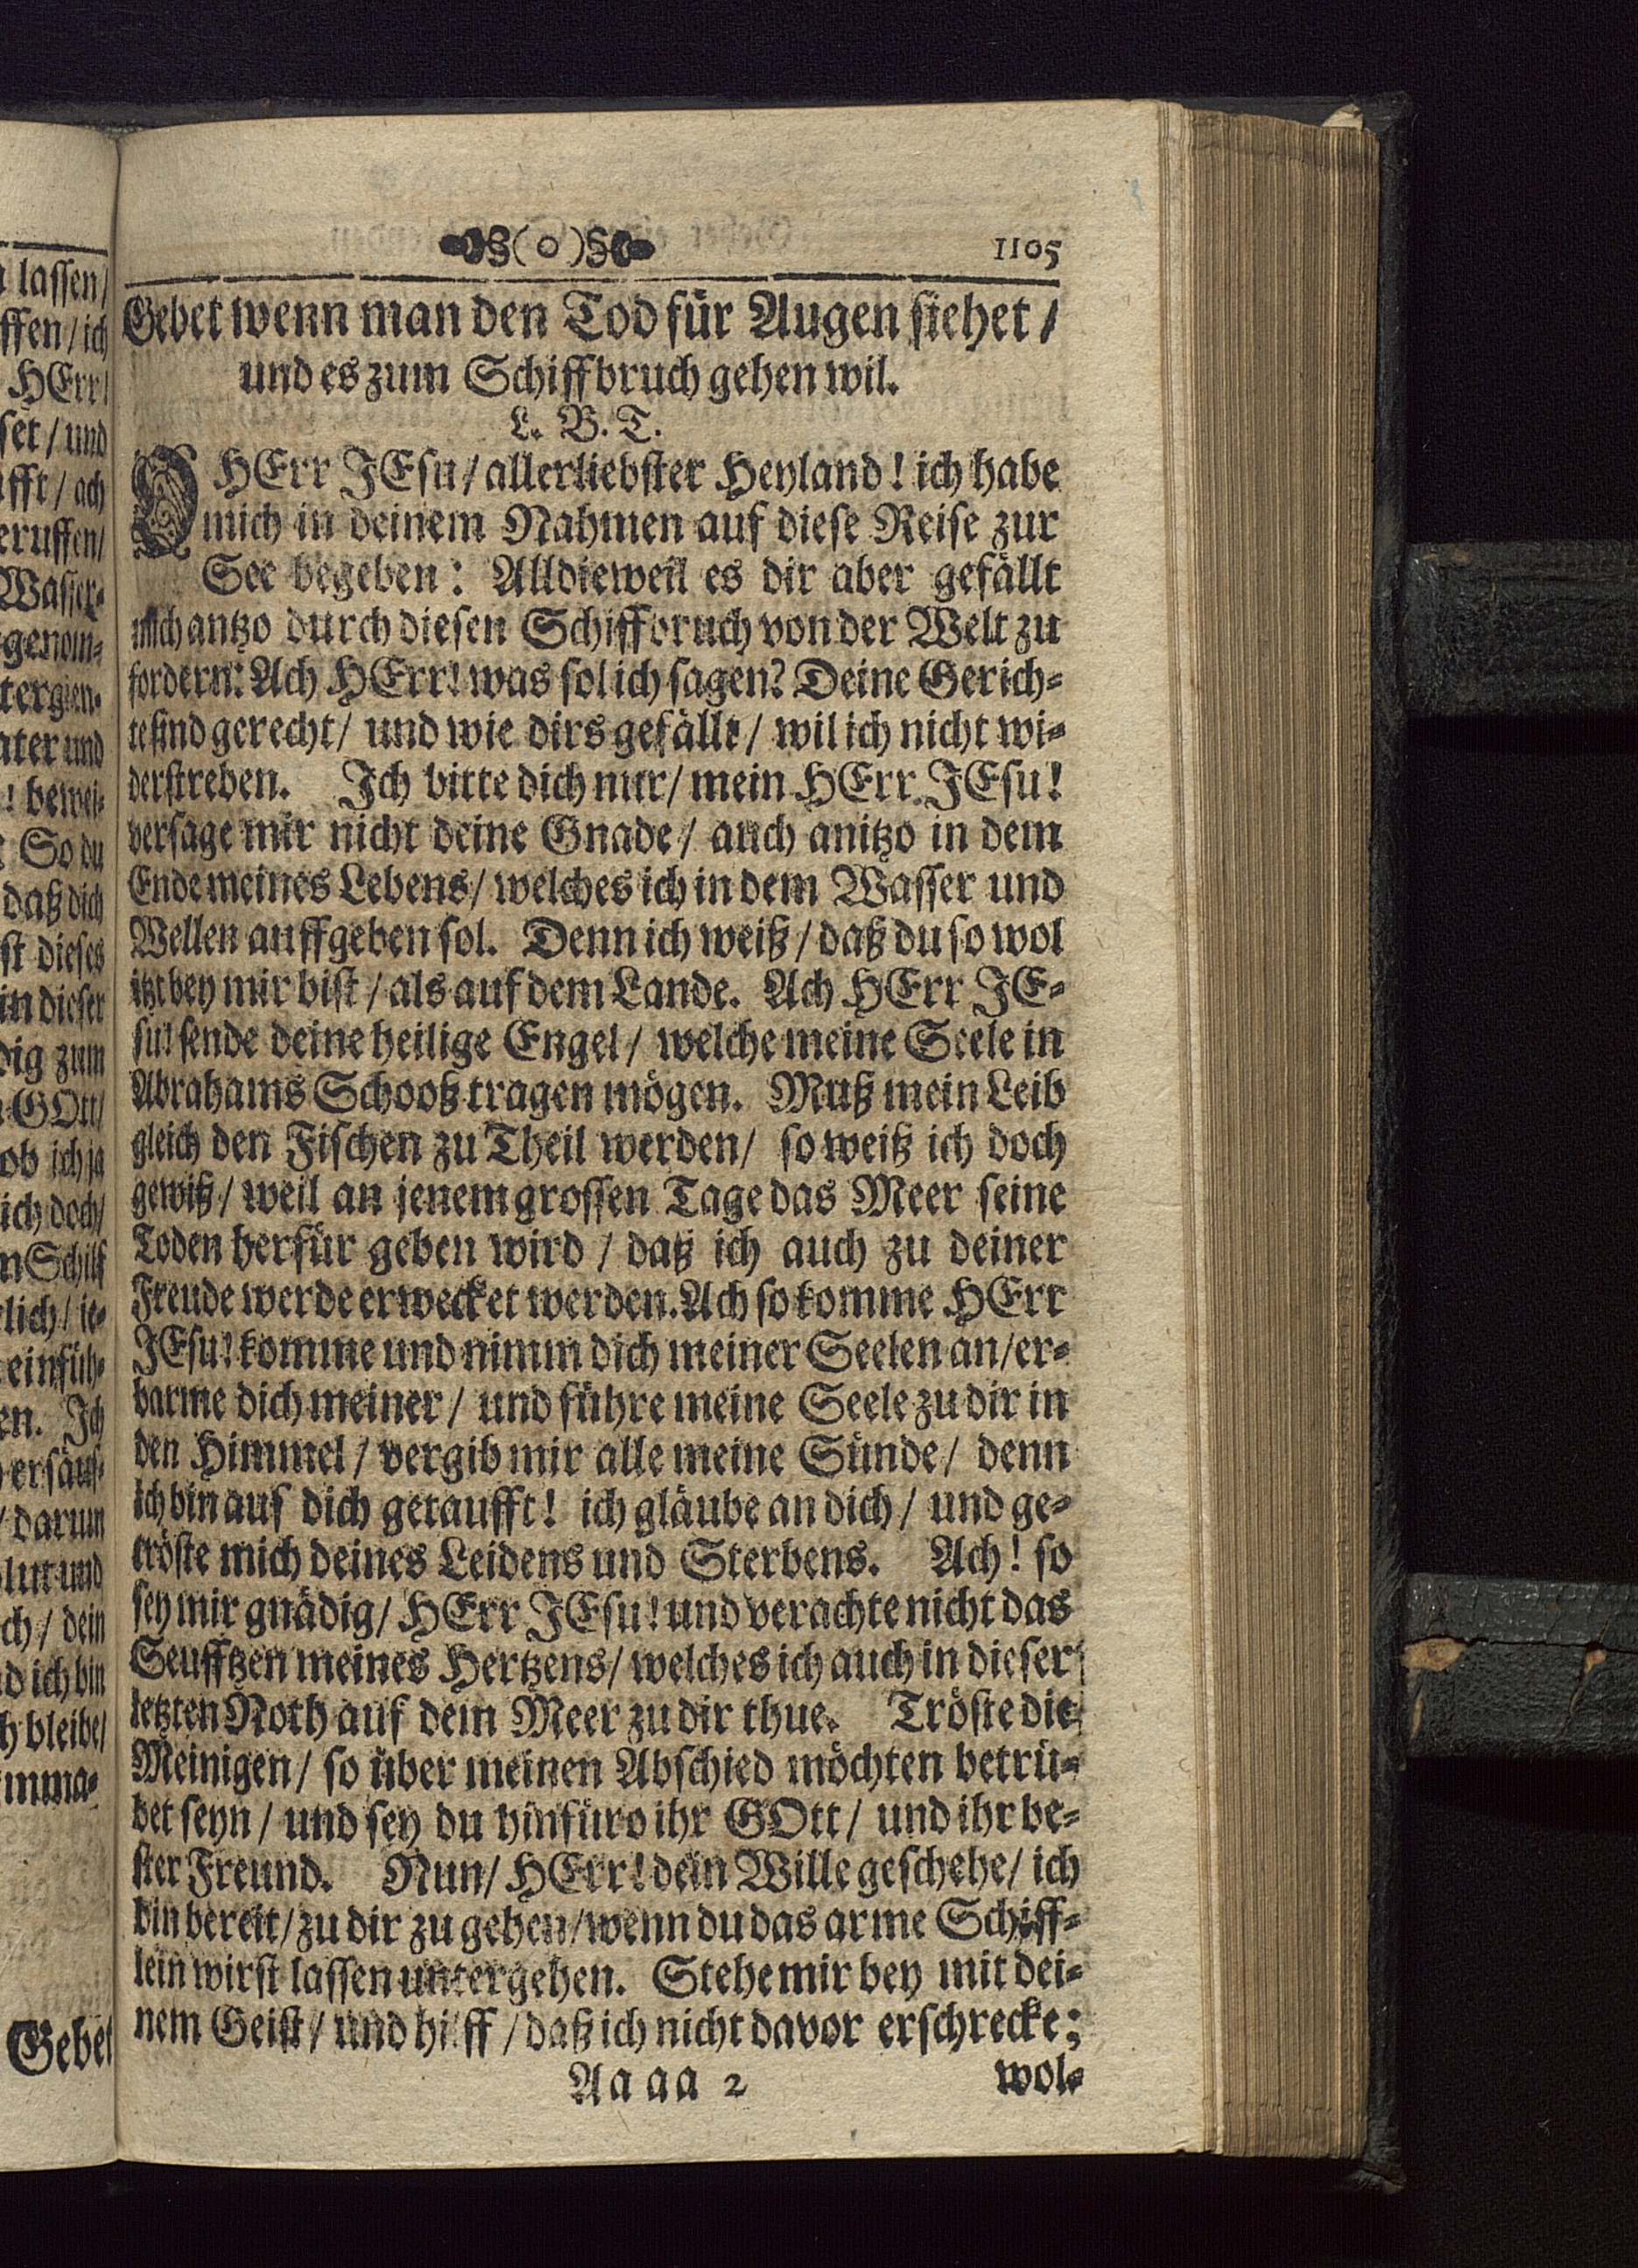 lassen/
ffen/ich
HErr/
set/und
ach
eruffen/
Wasser-
genom-
ter und
! bewei-
So du
daß dich
st dieses
in dieser
dig zum
GOtt/
ob ich ja
ich doch/
lich/je-
einfüh-
en. Ich
/darum
ch/dein
ich bin
bleibe/
Gebet
(o) 1105
Gebet wenn man den Tod für Augen siehet/
und es zum Schiffbruch gehen wil.
L. B. T.
O HErr JEsu/allerliebster Heyland! ich habe
mich in deinem Nahmen auf diese Reise zur
See begeben: Alldieweil es dir aber gefällt
mich antzo durch diesen Schiffbruch von der Welt zu
fordern: Ach HErr! was sol ich sagen? Deine Gerich-
te sind gerecht/ und wie dirs gefällt/ wil ich nicht wi-
derstreben. Ich bitte dich nur/ mein HErr JEsu!
versage mir nicht deine Gnade/ auch anitzo in dem
Ende meines Lebens/ welches ich in dem Wasser und
Wellen auffgeben sol. Denn ich weiß/ daß du so wol
itzt bey mir bist/ als auf dem Lande. Ach HErr JE-
su! sende deine heilige Engel/ welche meine Seele in
Abrahams Schooß tragen mögen. Muß mein Leib
gleich den Fischen zu Theil werden/ so weiß ich doch
gewiß/ weil an jenem grossen Tage das Meer seine
Toden herfür geben wird/ daß ich auch zu deiner
Freude werde erwecket werden. Ach so komme HErr
JEsu! komme und nimm dich meiner Seelen an/er-
barme dich meiner/ und führe meine Seele zu dir in
den Himmel/ vergib mir alle meine Sünde/ denn
ich bin auf dich getaufft! ich gläube an dich/ und ge-
tröste mich deines Leidens und Sterbens. Ach! so
sey mir gnädig/ HErr JEsu! und verachte nicht das
Seufftzen meines Hertzens/ welches ich auch in dieser
letzten Noth auf dem Meer zu dir thue. Tröste die
Meinigen/ so über meinen Abschied möchten betrü-
bet seyn/ und sey du hinfüro ihr GOtt/ und ihr be-
ster Freund. Nun/ HErr! dein Wille geschehe/ ich
bin bereit/ zu dir zu gehen/ wenn du das arme Schiff-
lein wirst lassen untergehen. Stehe mir bey mit dei-
nem Geist/ und hilff/ daß ich nicht davor erschrecke;
Aaaa 2 wol-